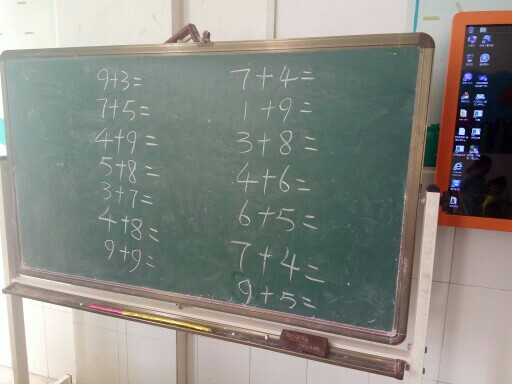 9+3=
7+5=
4+9=
5+8=
3+7=
4+8=
9+9=
7+4=
1+9=
3+8=
4+6=
6+5=
7+4=
9+5=